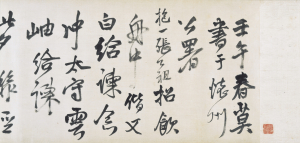 壬午春莫
書于懷州
公署
抱一張公祖招飲
舟中偕又
白給諫念
沖太守雲
岫給諫